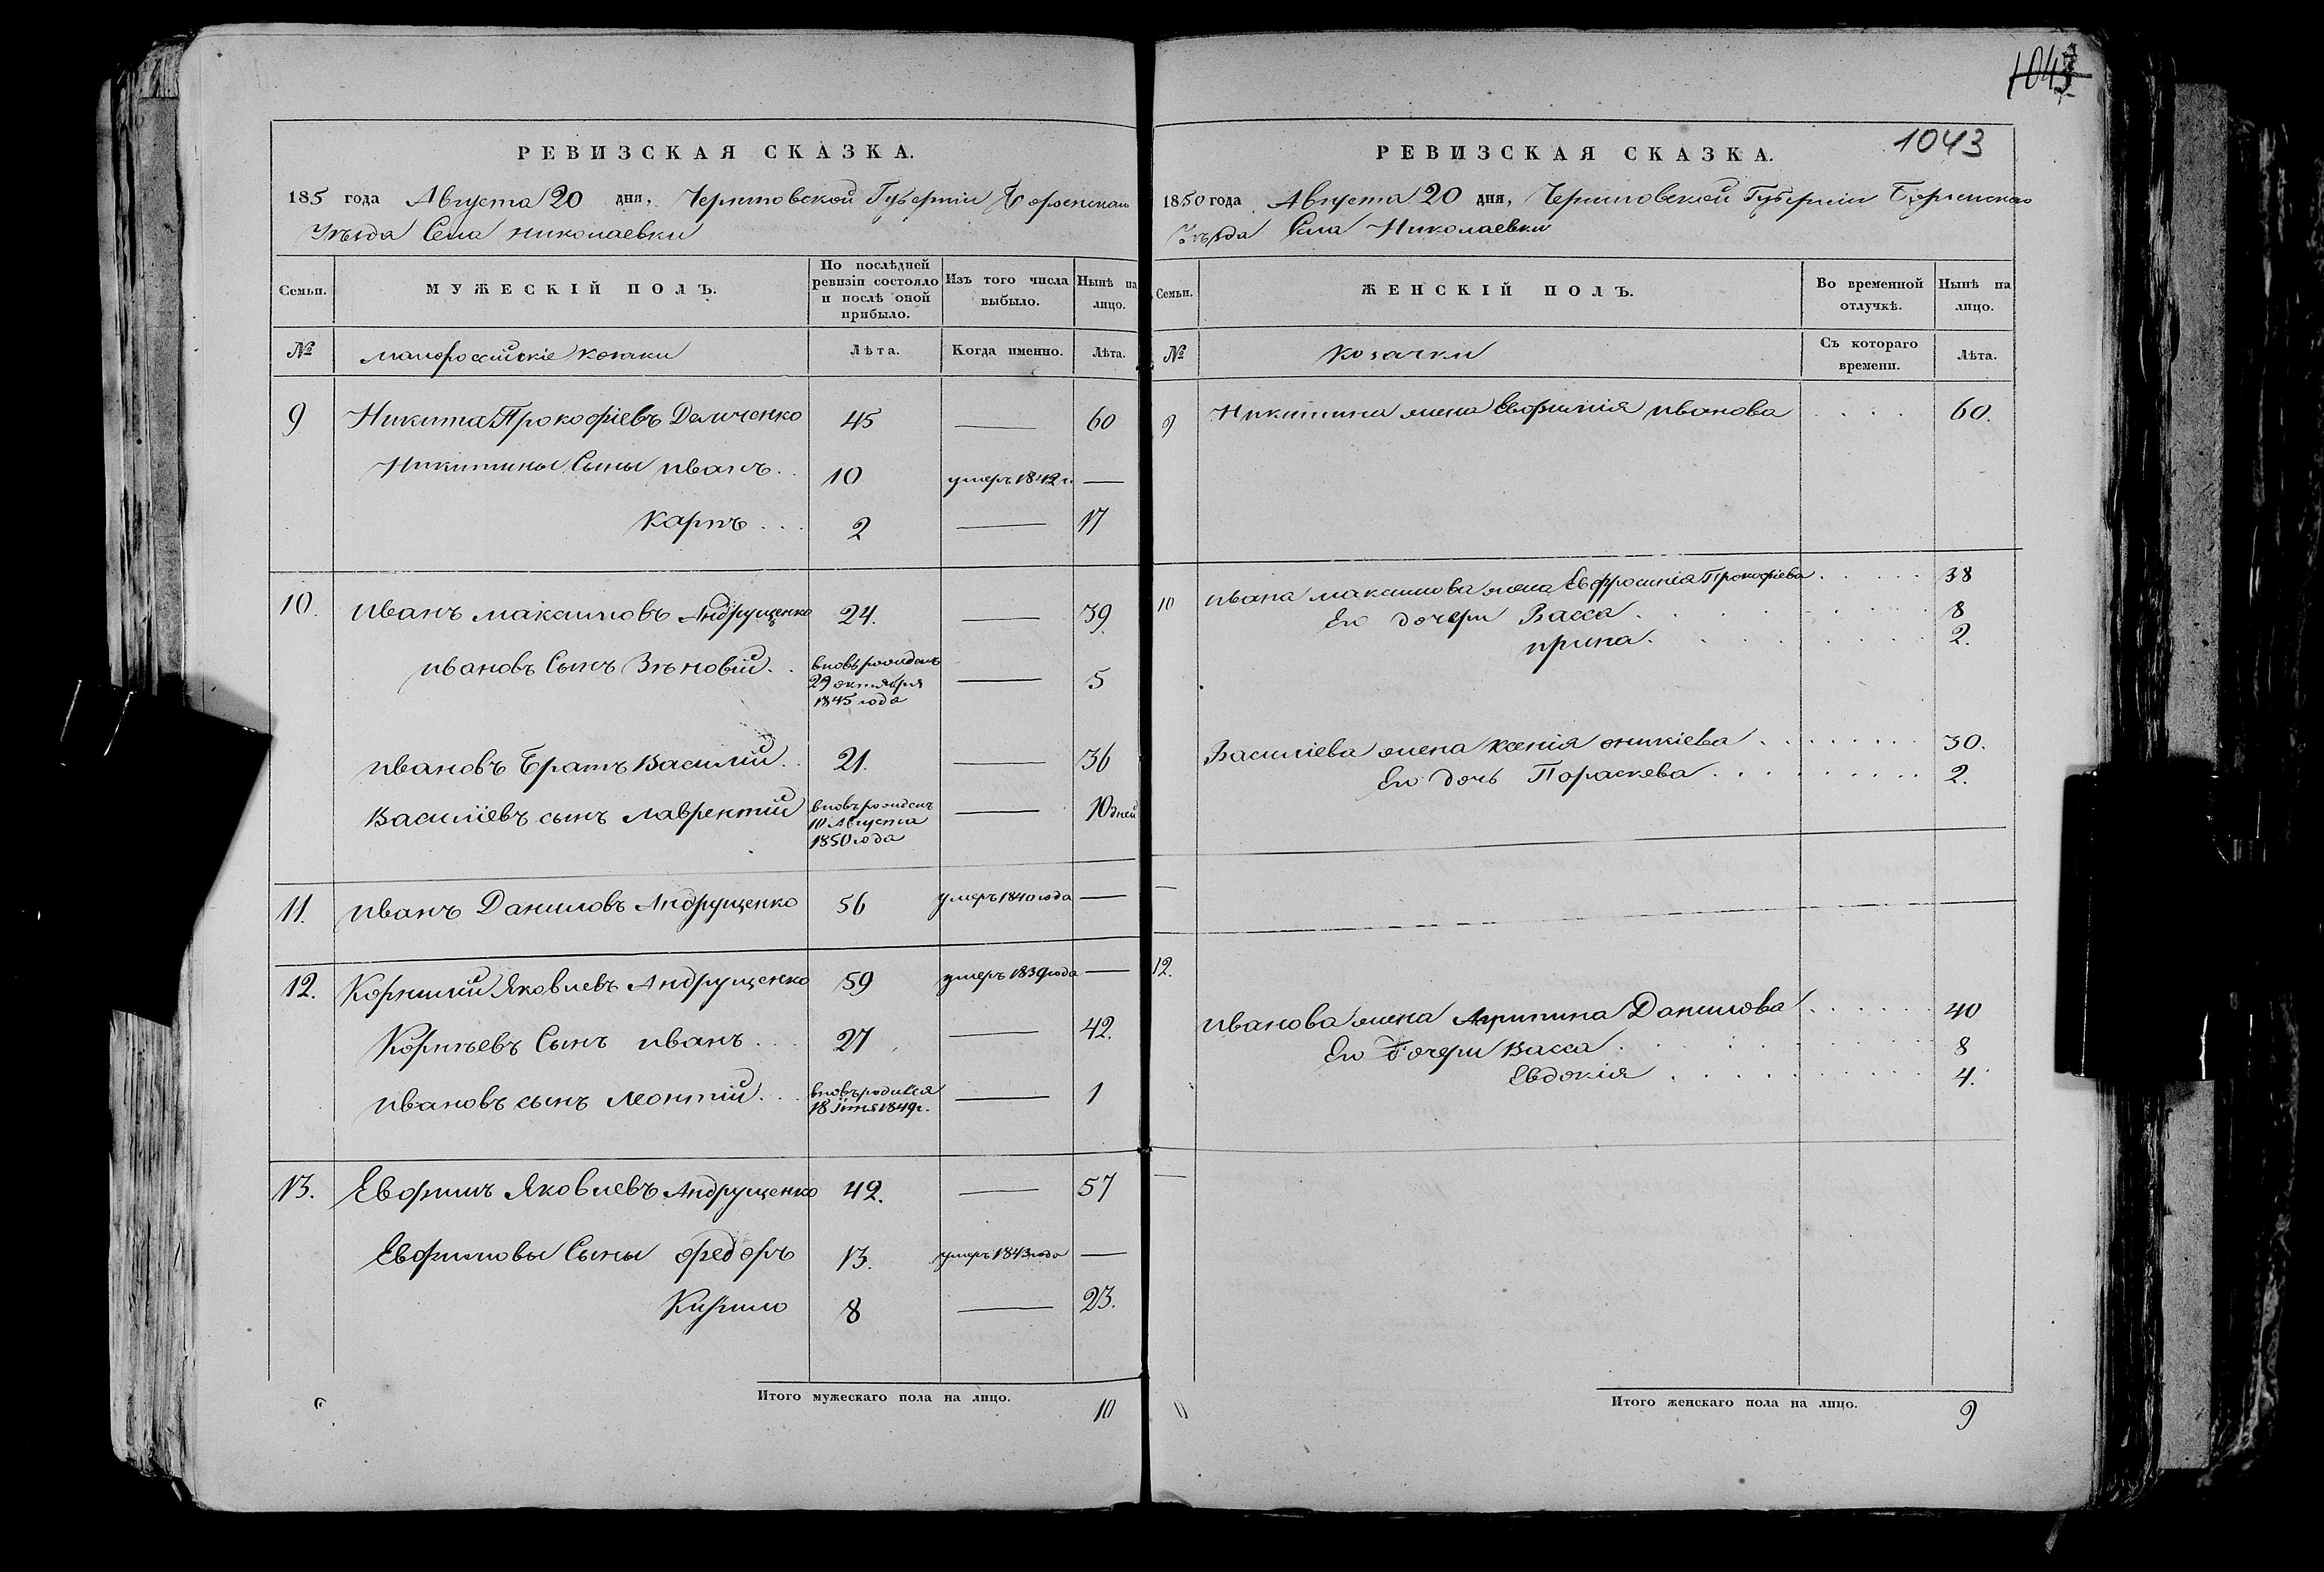 1043
РЕВИЗСКАЯ СКАЗКА.
185 года Августа 20 дня, Черниговской Губерніи Борзенскаго
Уѣзда Села Николаевки
Семьи. МУЖЕСКІЙ ПОЛЪ. По послѣдней ревизіи состояло и послѣ оной прибыло. Изъ того числа выбыло. Нынѣ на лицо.
№ малороссійскіе козаки Лѣта. Когда именно. Лѣта.
9 Никита Прокофіевъ Демченко 45 — 60
Никитины Сыны иванъ . . 10 умеръ 1842 г. —
карпъ . . . 2 — 17
10. иванъ максимовъ Андрущенко 24. — 39.
ивановъ Сынъ Зѣновій . . вновь рожденъ 29 октября 1845 года — 5
ивановъ Братъ Василий . . 21. — 36
Василіевъ сынъ лаврентій вновь рожденъ 10 Августа 1850 года — 10 дней
11. иванъ Даниловъ Андрущенко 56 умеръ 1840 года —
12. Корнилій Яковлевъ Андрущенко 59 умеръ 1839 года —
Корнѣевъ Сынъ иванъ . . . 27 — 42.
ивановъ сынъ леонтій . . . вновь родился 18 1849 г. — 1
13. Евфимъ Яковлевъ Андрущенко 42. — 57
Евфимовы Сыны федоръ 13. умеръ 1843 года —
Кирило 8 — 23.
Итого мужескаго пола на лицо. 10
РЕВИЗСКАЯ СКАЗКА. 1043
1850 года Августа 20 дня, Черниговской Губерніи Борзенскаго
Уѣзда Села Николаевки
Семьи. ЖЕНСКІЙ ПОЛЪ. Во временной отлучкѣ. Нынѣ на лицо.
№ козачки Съ котораго времени. Лѣта.
9 Никитина жена Евфимія иванова . . . . 60.
10 ивана максимова жена Евфросинія Прокофіева . . . . . 38
Его дочери Васса . . . . . . . 8
ирина . . . . . . . 2.
Василіева жена ксенія оникіева . . . . . . . . 30.
Его дочь Пораскева . . . . . . . . . 2.
12.
иванова жена Агрипина Данилова . . . . . . 40
Его дочери Васса . . . . . . 8
Евдокія . . . . . . . . 4.
Итого женскаго пола на лицо. 9